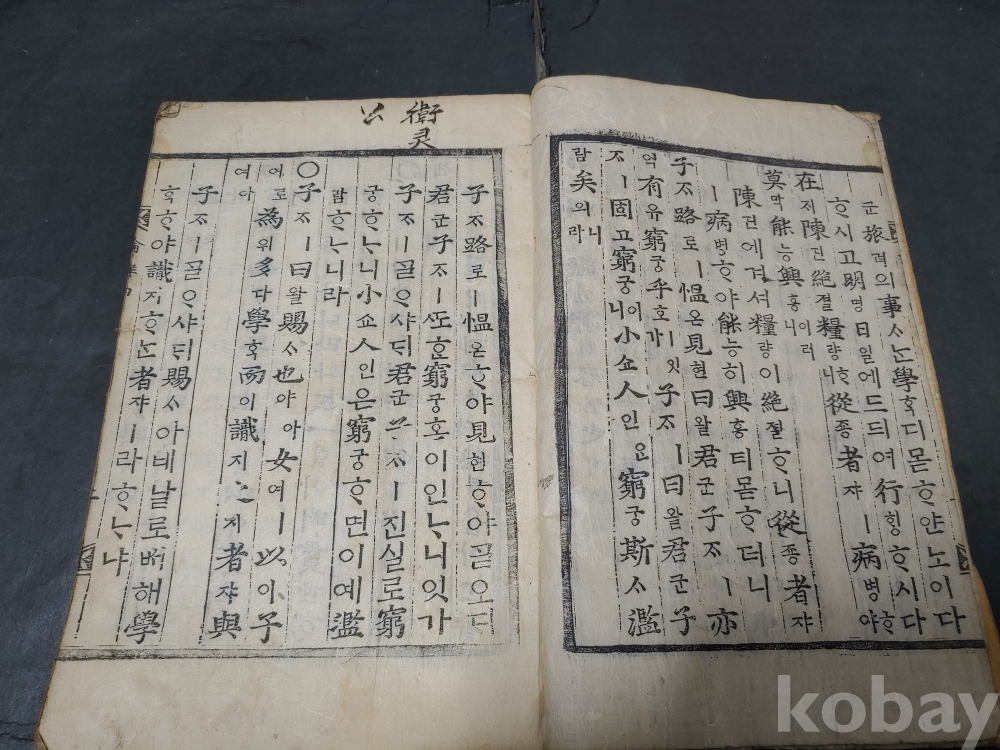 군旅려의事ᄉᆞᄂᆞᆫ學ᄒᆞᆨ디몯ᄒᆞ얀노이다
ᄒᆞ시고明명日일에드듸여行ᄒᆡᆼᄒᆞ시다
在ᄌᆡ陳딘絶졀糧량이러니ᄒᆞ從죵者쟈ㅣ病병ᄒᆞ야
莫막能능興흥니
陳딘에겨셔糧량이絶졀ᄒᆞ니從죵者쟈
ㅣ病병ᄒᆞ야能능히興흥티몯ᄒᆞ더니
子ᄌᆞ路로ㅣ慍온見현曰왈君군子ᄌᆞㅣ亦
역有유窮궁乎호ㅣ잇가子ᄌᆞㅣ曰왈君군子
ᄌᆞㅣ固고窮궁이니小쇼人인은窮궁斯ᄉᆞ濫
람矣의니라
衛灵公
子ᄌᆞ路로ㅣ慍온ᄒᆞ야見현ᄒᆞ야ᄀᆞᆯ오ᄃᆡ
君군子ᄌᆞㅣᄯᅩᄒᆞᆫ窮궁홈이인ᄂᆞ니잇가
子ᄌᆞㅣᄀᆞᆯᄋᆞ샤ᄃᆡ君군子ᄌᆞㅣ진실로窮
궁ᄒᆞᄂᆞ니小쇼人인은窮궁ᄒᆞ면이예濫
람ᄒᆞᄂᆞ니라
○子ᄌᆞㅣ曰왈賜ᄉᆞ也야아女여ㅣ以이予
여로爲위多다學ᄒᆞᆨ而이識지之지者쟈與
여아
子ᄌᆞㅣᄀᆞᆯᄋᆞ샤ᄃᆡ賜ᄉᆞ아네날로ᄡᅥ해學
ᄒᆞᆨᄒᆞ야識지ᄒᆞᄂᆞᆫ者쟈ㅣ라ᄒᆞᄂᆞ냐
kobay